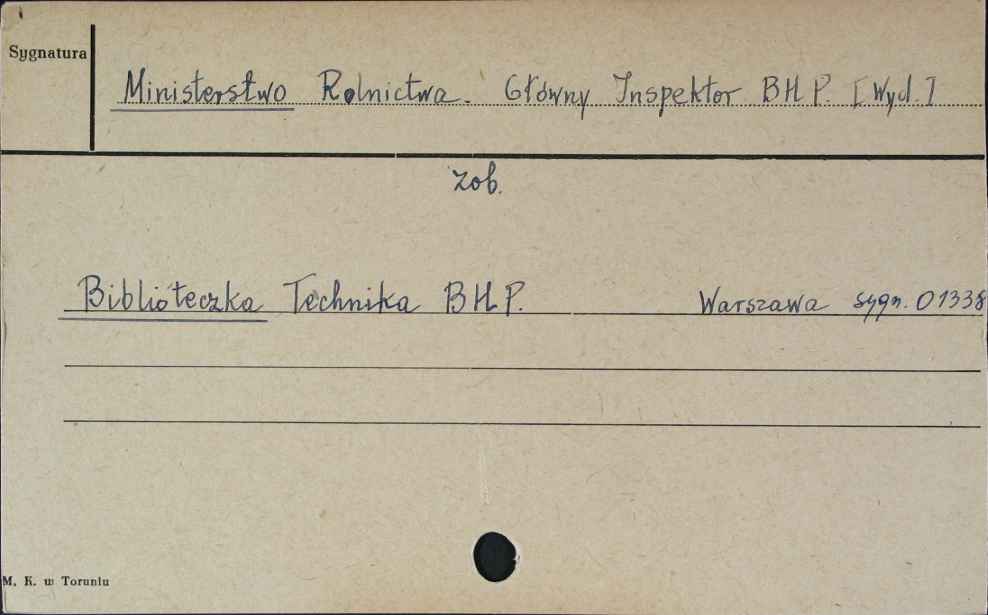 Sygnatura
Ministerstwo Rolnictwa. Główny Inspektor BHP. [Wyd.]
Zob.
Biblioteczka Technika BHP. Warszawa sygn. 01338
M. K. w Toruniu